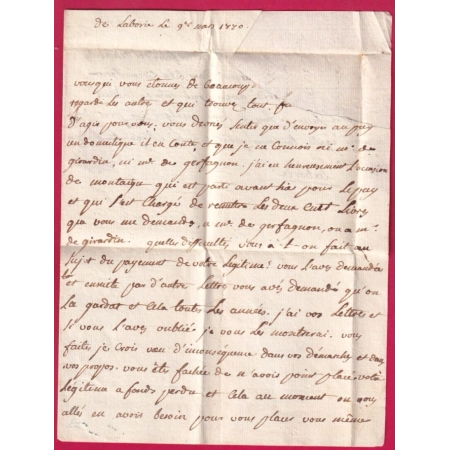 de Laborie Le 9e mars 1770.
vousqui vous etonnes de beaucoup
regarde les autre et qui trouve tout
D'agir pour vous, vous devries sentir que d'envoyer au puy
un domestique il en coute, et que je ne connois ni mr. de
girardin, ni mr. de gerfagnon. j'ai eu heureusement l'occasion
de montaigu qui est parti avant hier pour Le puy
et qui s'est Chargé de remetre Les deux Cent Livres
que vous me demandes, a mr. de gerfagnon, ou a mr.
de girardin. quelles difficultés vous a-t-on fait au
sujet du payement de votre Legitime? vous L'aves demandée
et ensuite par d'autre Lettre vous avés demandé qu'on
La gardat et Cela toutes Les années. j'ai vos Lettres et
si vous L'aves oublié je vous Les montrerai. vous
faites je Crois voeu d'inconsequence dans vos demarches et dans
vos propos. vous été fachée de n'avoir point placé votre
Legitime a fonds perdu et Cela au moment ou vous
alles en avoir besoin pour vous placer vous même